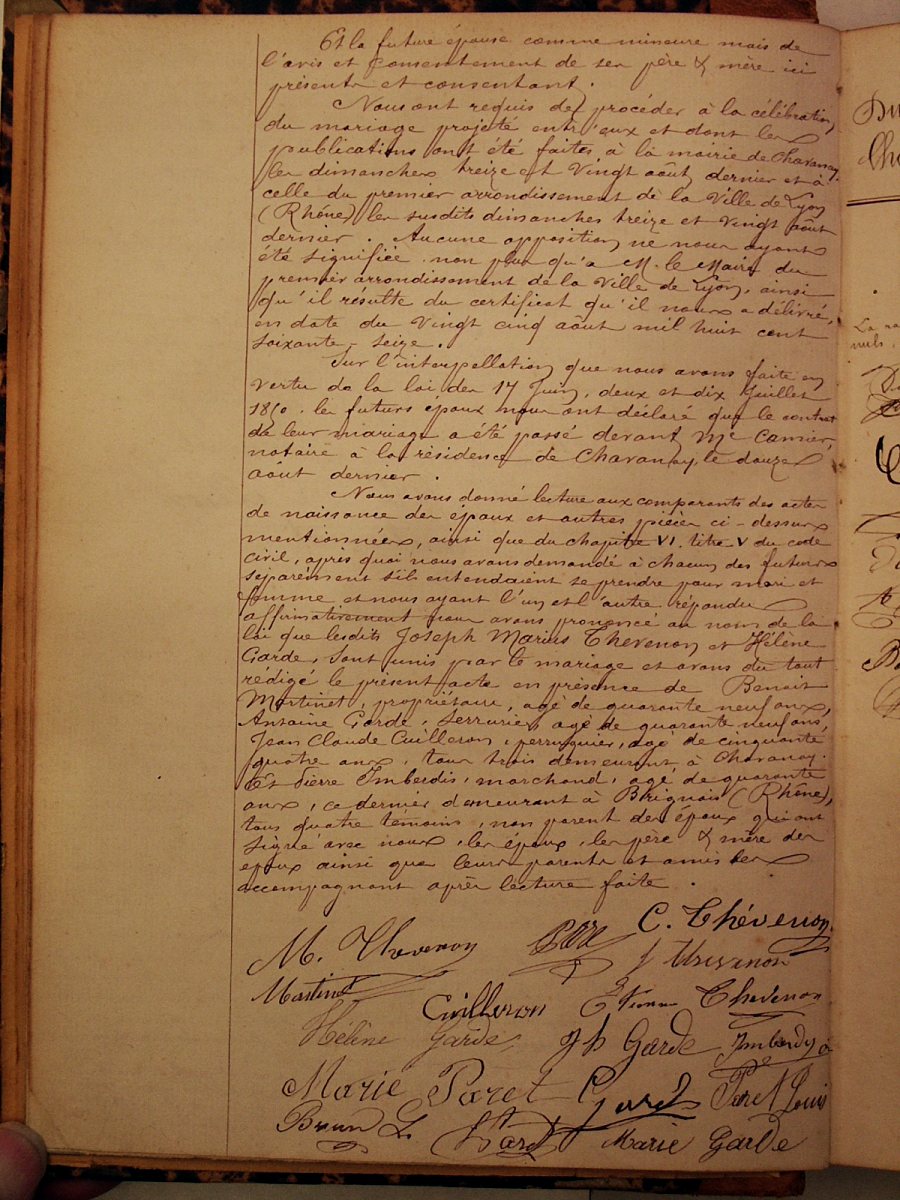 Et la future épouse comme mineure mais de
l'avis et consentement de ses père & mère ici
présents et consentant.
Nous ont requis de procéder à la célébration
du mariage projeté entr'eux et dont les
publications ont été faites à la mairie de Chavanay
les dimanches treize et vingt août dernier et à
celle du premier arrondissement de la Ville de Lyon
(Rhône) les susdits dimanches treize et vingt août
dernier. Aucune opposition ne nous ayant
été signifiée non plus qu'à M. le Maire du
premier arrondissement de la Ville de Lyon, ainsi
qu'il résulte du certificat qu'il nous a délivré,
en date du vingt cinq août mil huit cent
soixante-seize.
Sur l'interpellation que nous avons faite en
vertu de la loi des 17 Juin, deux et dix Juillet
1850. les futurs époux nous ont déclaré que le contrat
de leur mariage a été passé devant Me
notaire à la résidence de Chavanay, le douze
août dernier.
Nous avons donné lecture aux comparants des actes
de naissance des époux et autres pièces ci-dessus
mentionnées, ainsi que du chapitre VI. titre V du code
civil, après quoi nous avons demandé à chacun des futurs
séparément s'ils entendaient se prendre pour mari et
femme et nous ayant l'un et l'autre répondu
affirmativement nous avons prononcé au nom de la
loi que lesdits Joseph Marius Thevenon et Hélène
Garde, sont unis par le mariage et avons du tout
rédigé le présent acte en présence de Benoit
Martinet, propriétaire, agé de quarante neuf ans,
Antoine Garde, serrurier, agé de quarante neuf ans,
Jean Claude Cuilleron, perruquier, agé de cinquante
quatre ans, tous trois demeurant à Chavanay.
Et Pierre Imberdis, marchand, agé de quarante
ans, ce dernier demeurant à Brignais (Rhône),
tous quatre témoins, non parent des époux qui ont
signé avec nous, les époux, les père & mère des
époux ainsi que leurs parents et amis les
accompagnant après lecture faite.
M. Thevenon C. Thévenon
J Thevenon
Martinet Cuilleron Etienne Thevenon
Hélène Garde Jh Garde Imberdis
Marie Paret Paret Louis
Brun L. Marie Garde